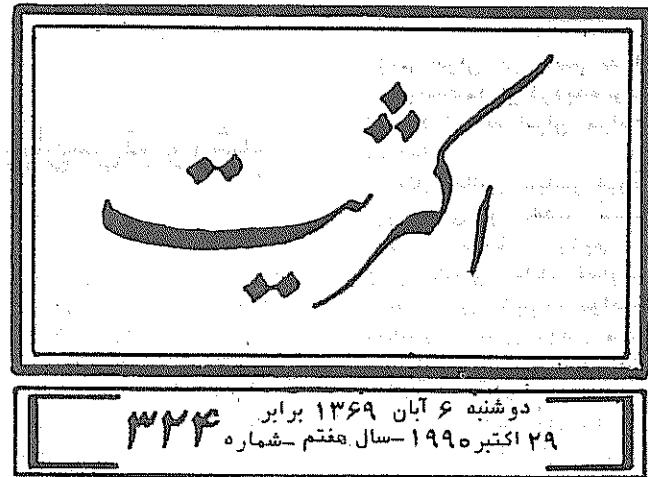 اکثریت
دوشنبه ۶ آبان ۱۳۶۹ برابر
۲۹ اکتبر ۱۹۹۰ –سال هفتم –شماره ۳۲۴